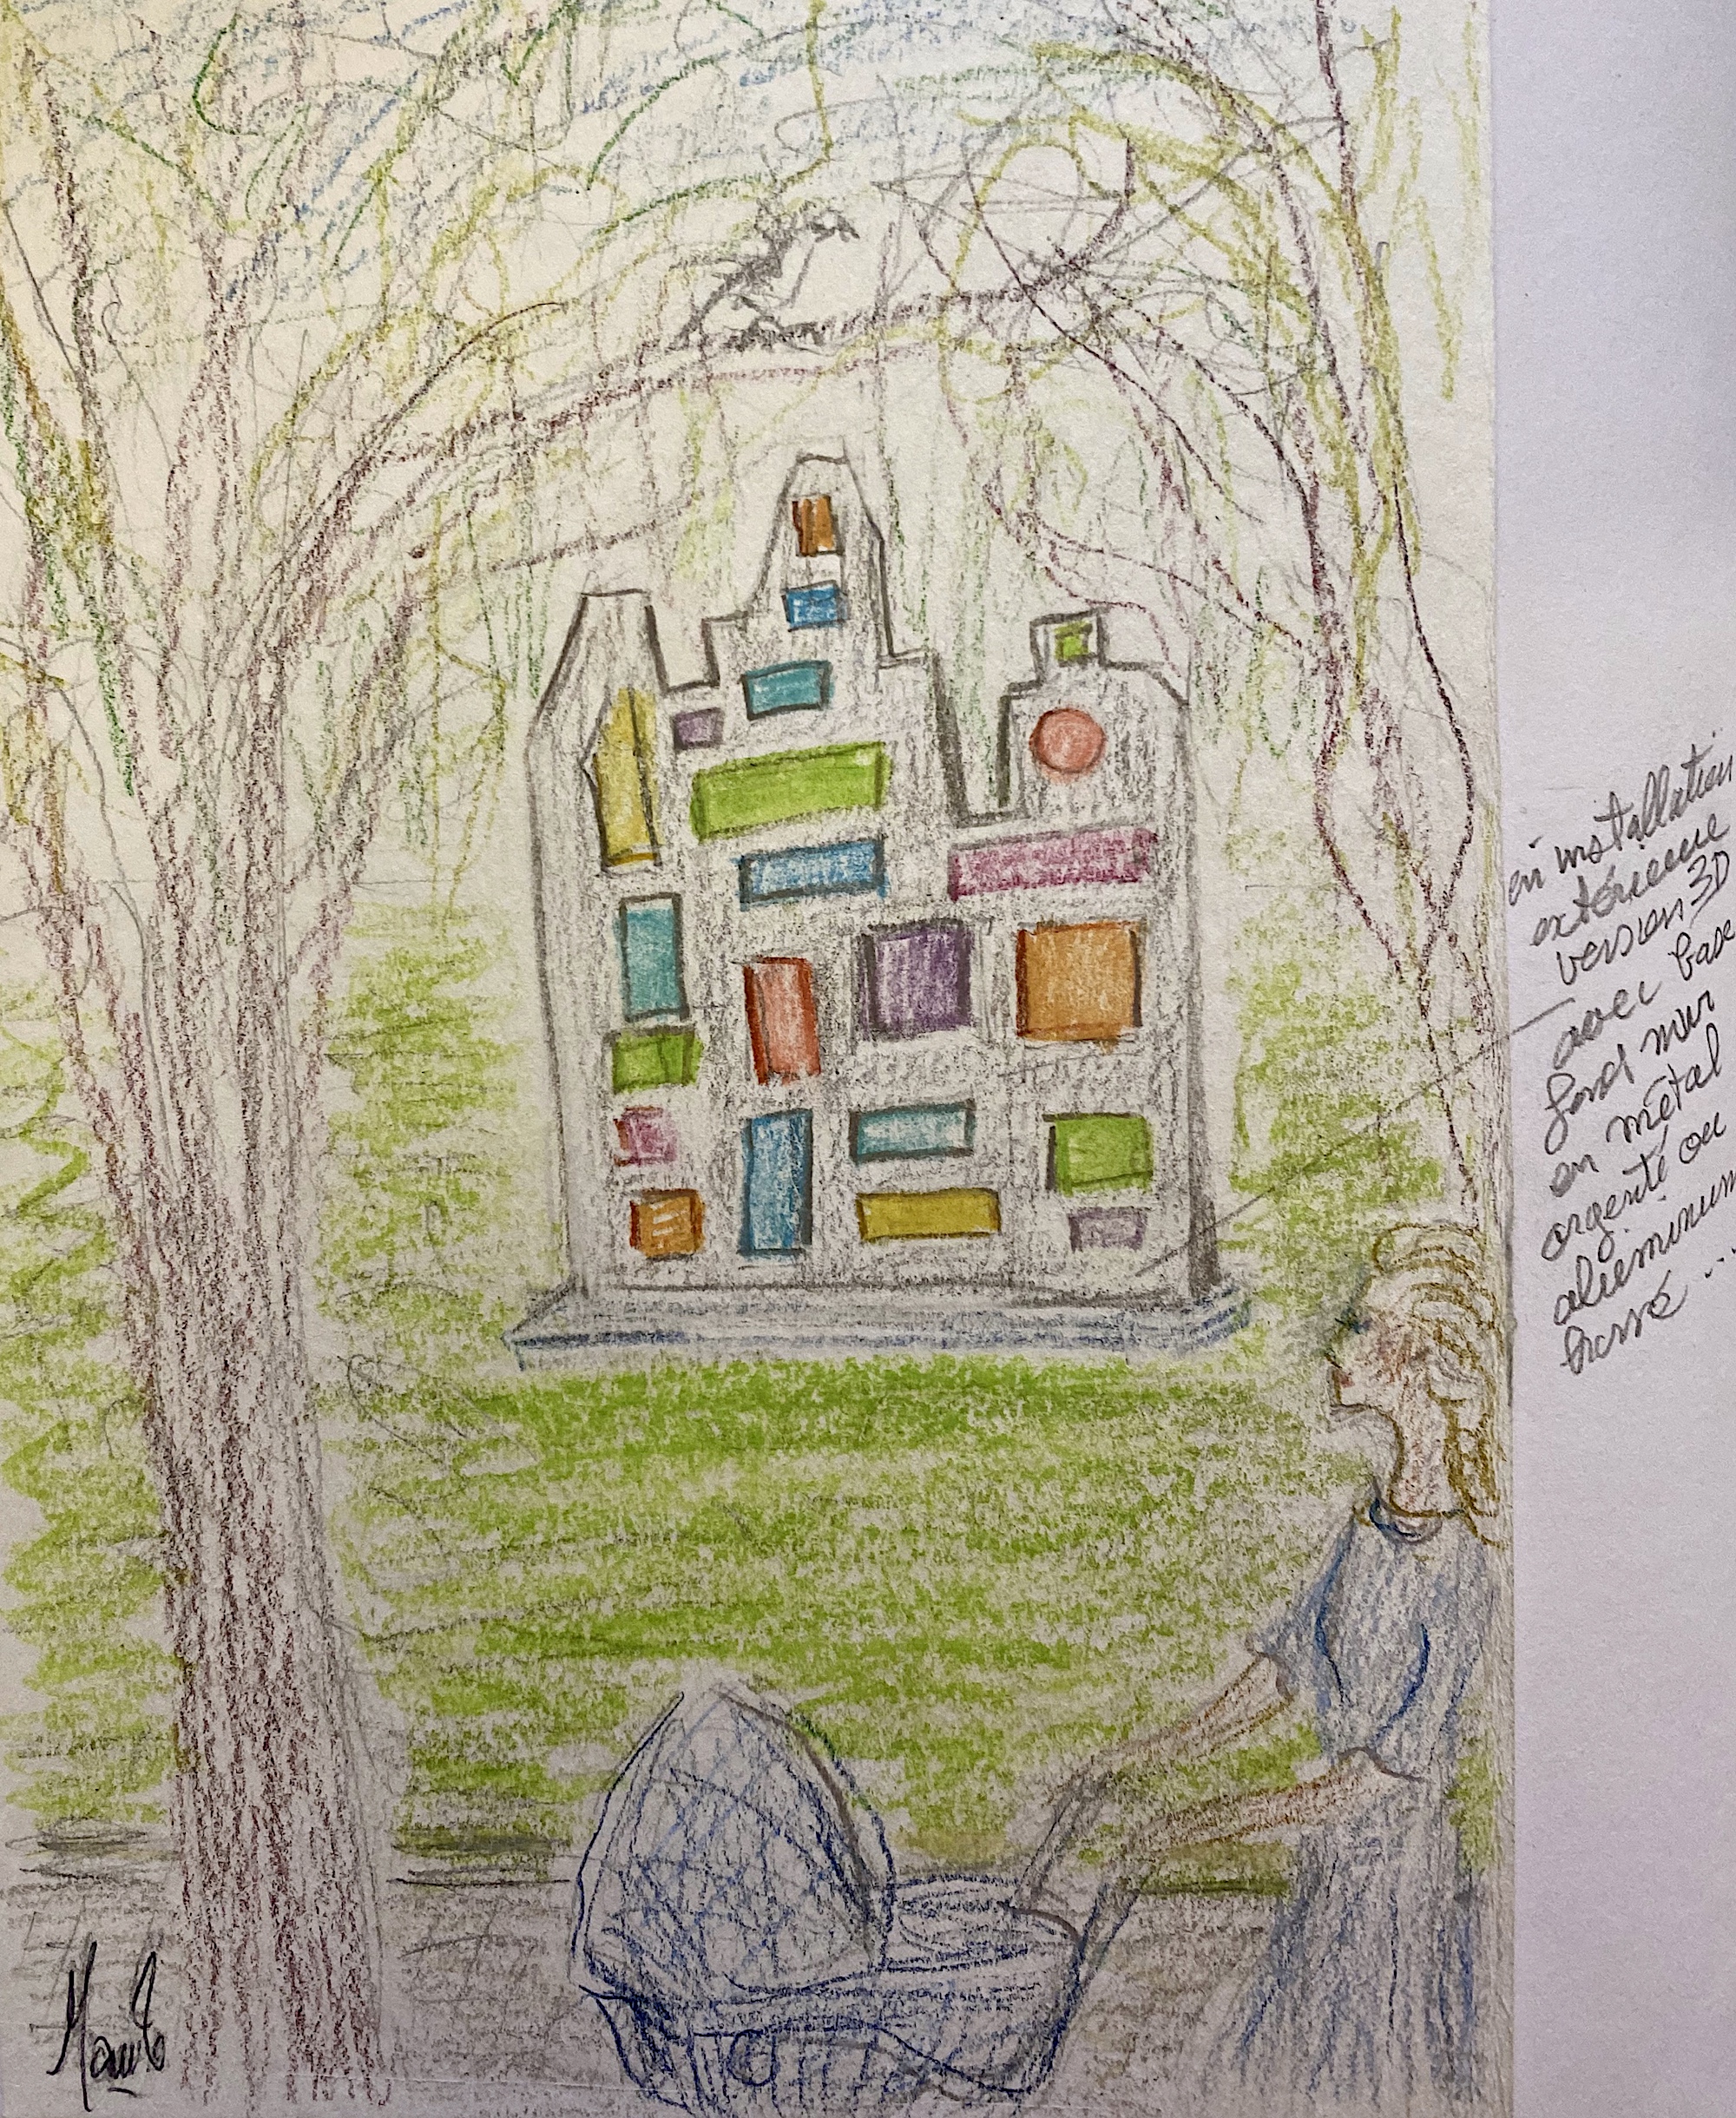 en installation
extérieure
version 3D
avec base
fond mur
en métal
argenté ou
alieminum
brossé ...